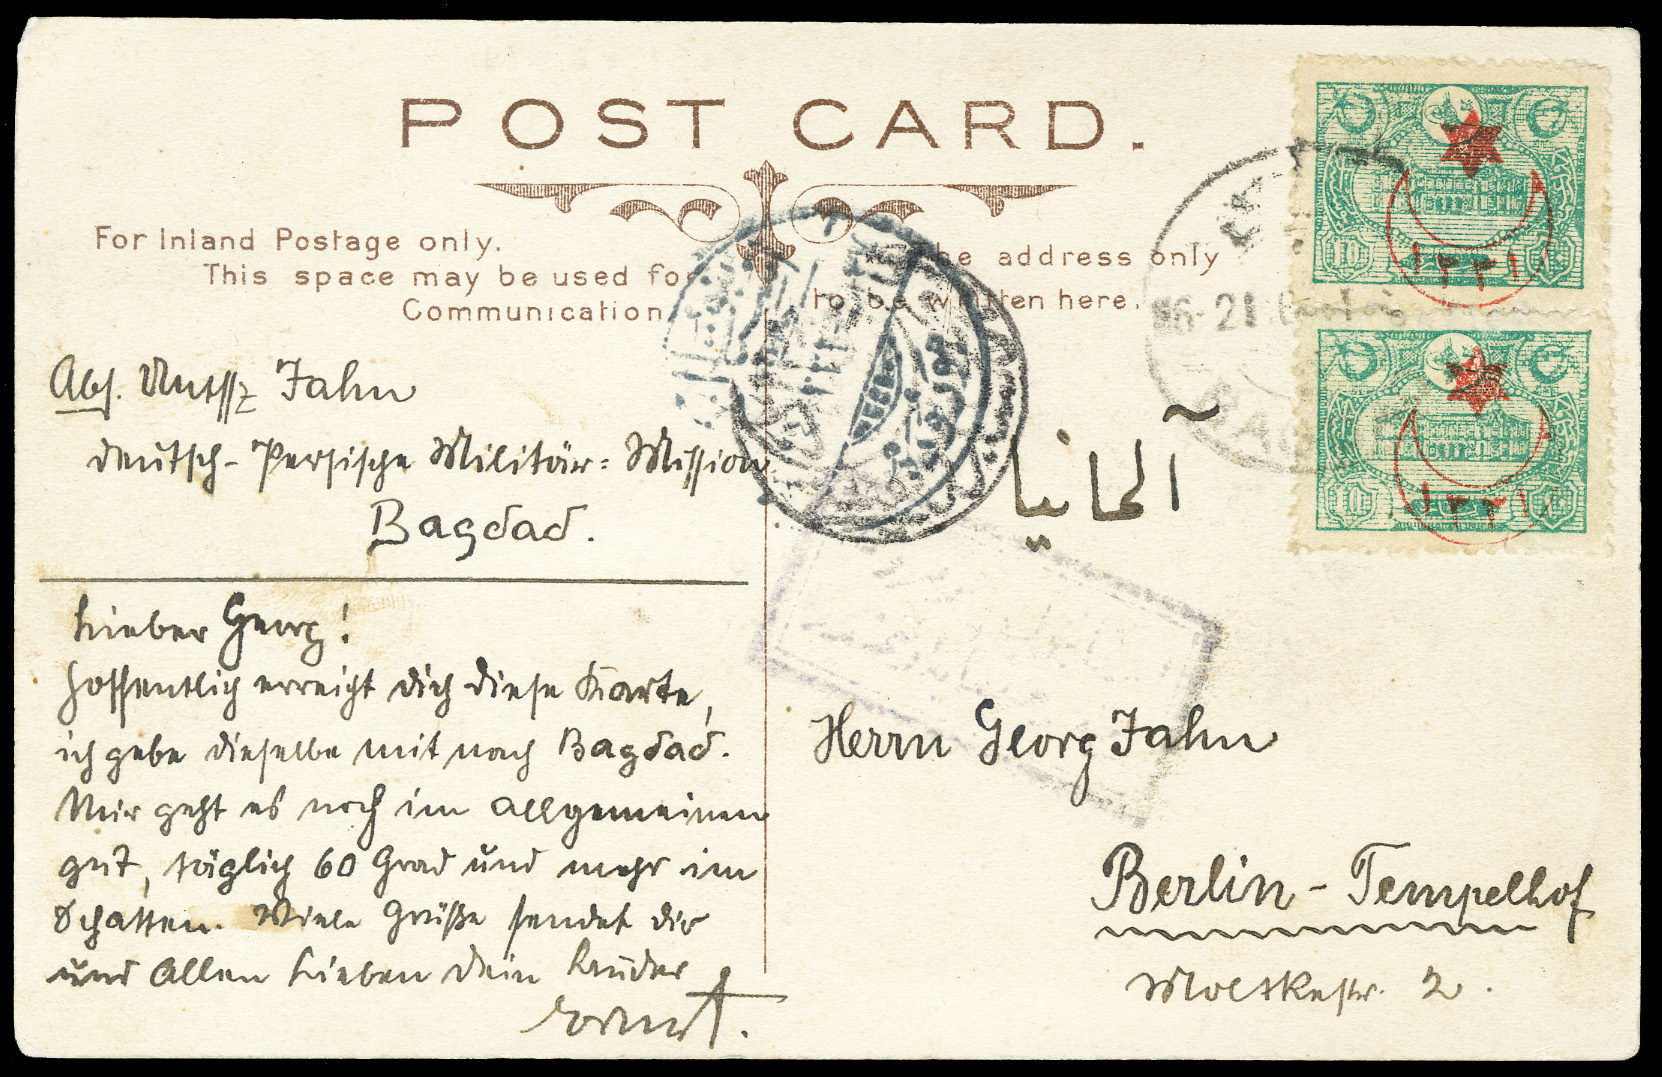 POST CARD.
For Inland Postage only.
This space may be used for
Communication.
The address only
to be written here.
Abs. Jahn
Deutsch-Persische Militär-Mission
Bagdad.
Lieber Georg!
Hoffentlich erreicht dich diese Karte,
ich gebe dieselbe mit nach Bagdad.
Mir geht es noch im allgemeinen
gut, täglich 60 Grad und mehr im
Schatten. Viele Grüße sendet dir
und Allen Lieben dein Bruder
Ernst.
المانيا
Herrn Georg Jahn
Berlin-Tempelhof
Moltkestr. 2.
10
١٣٣١
10
١٣٣١
6-21